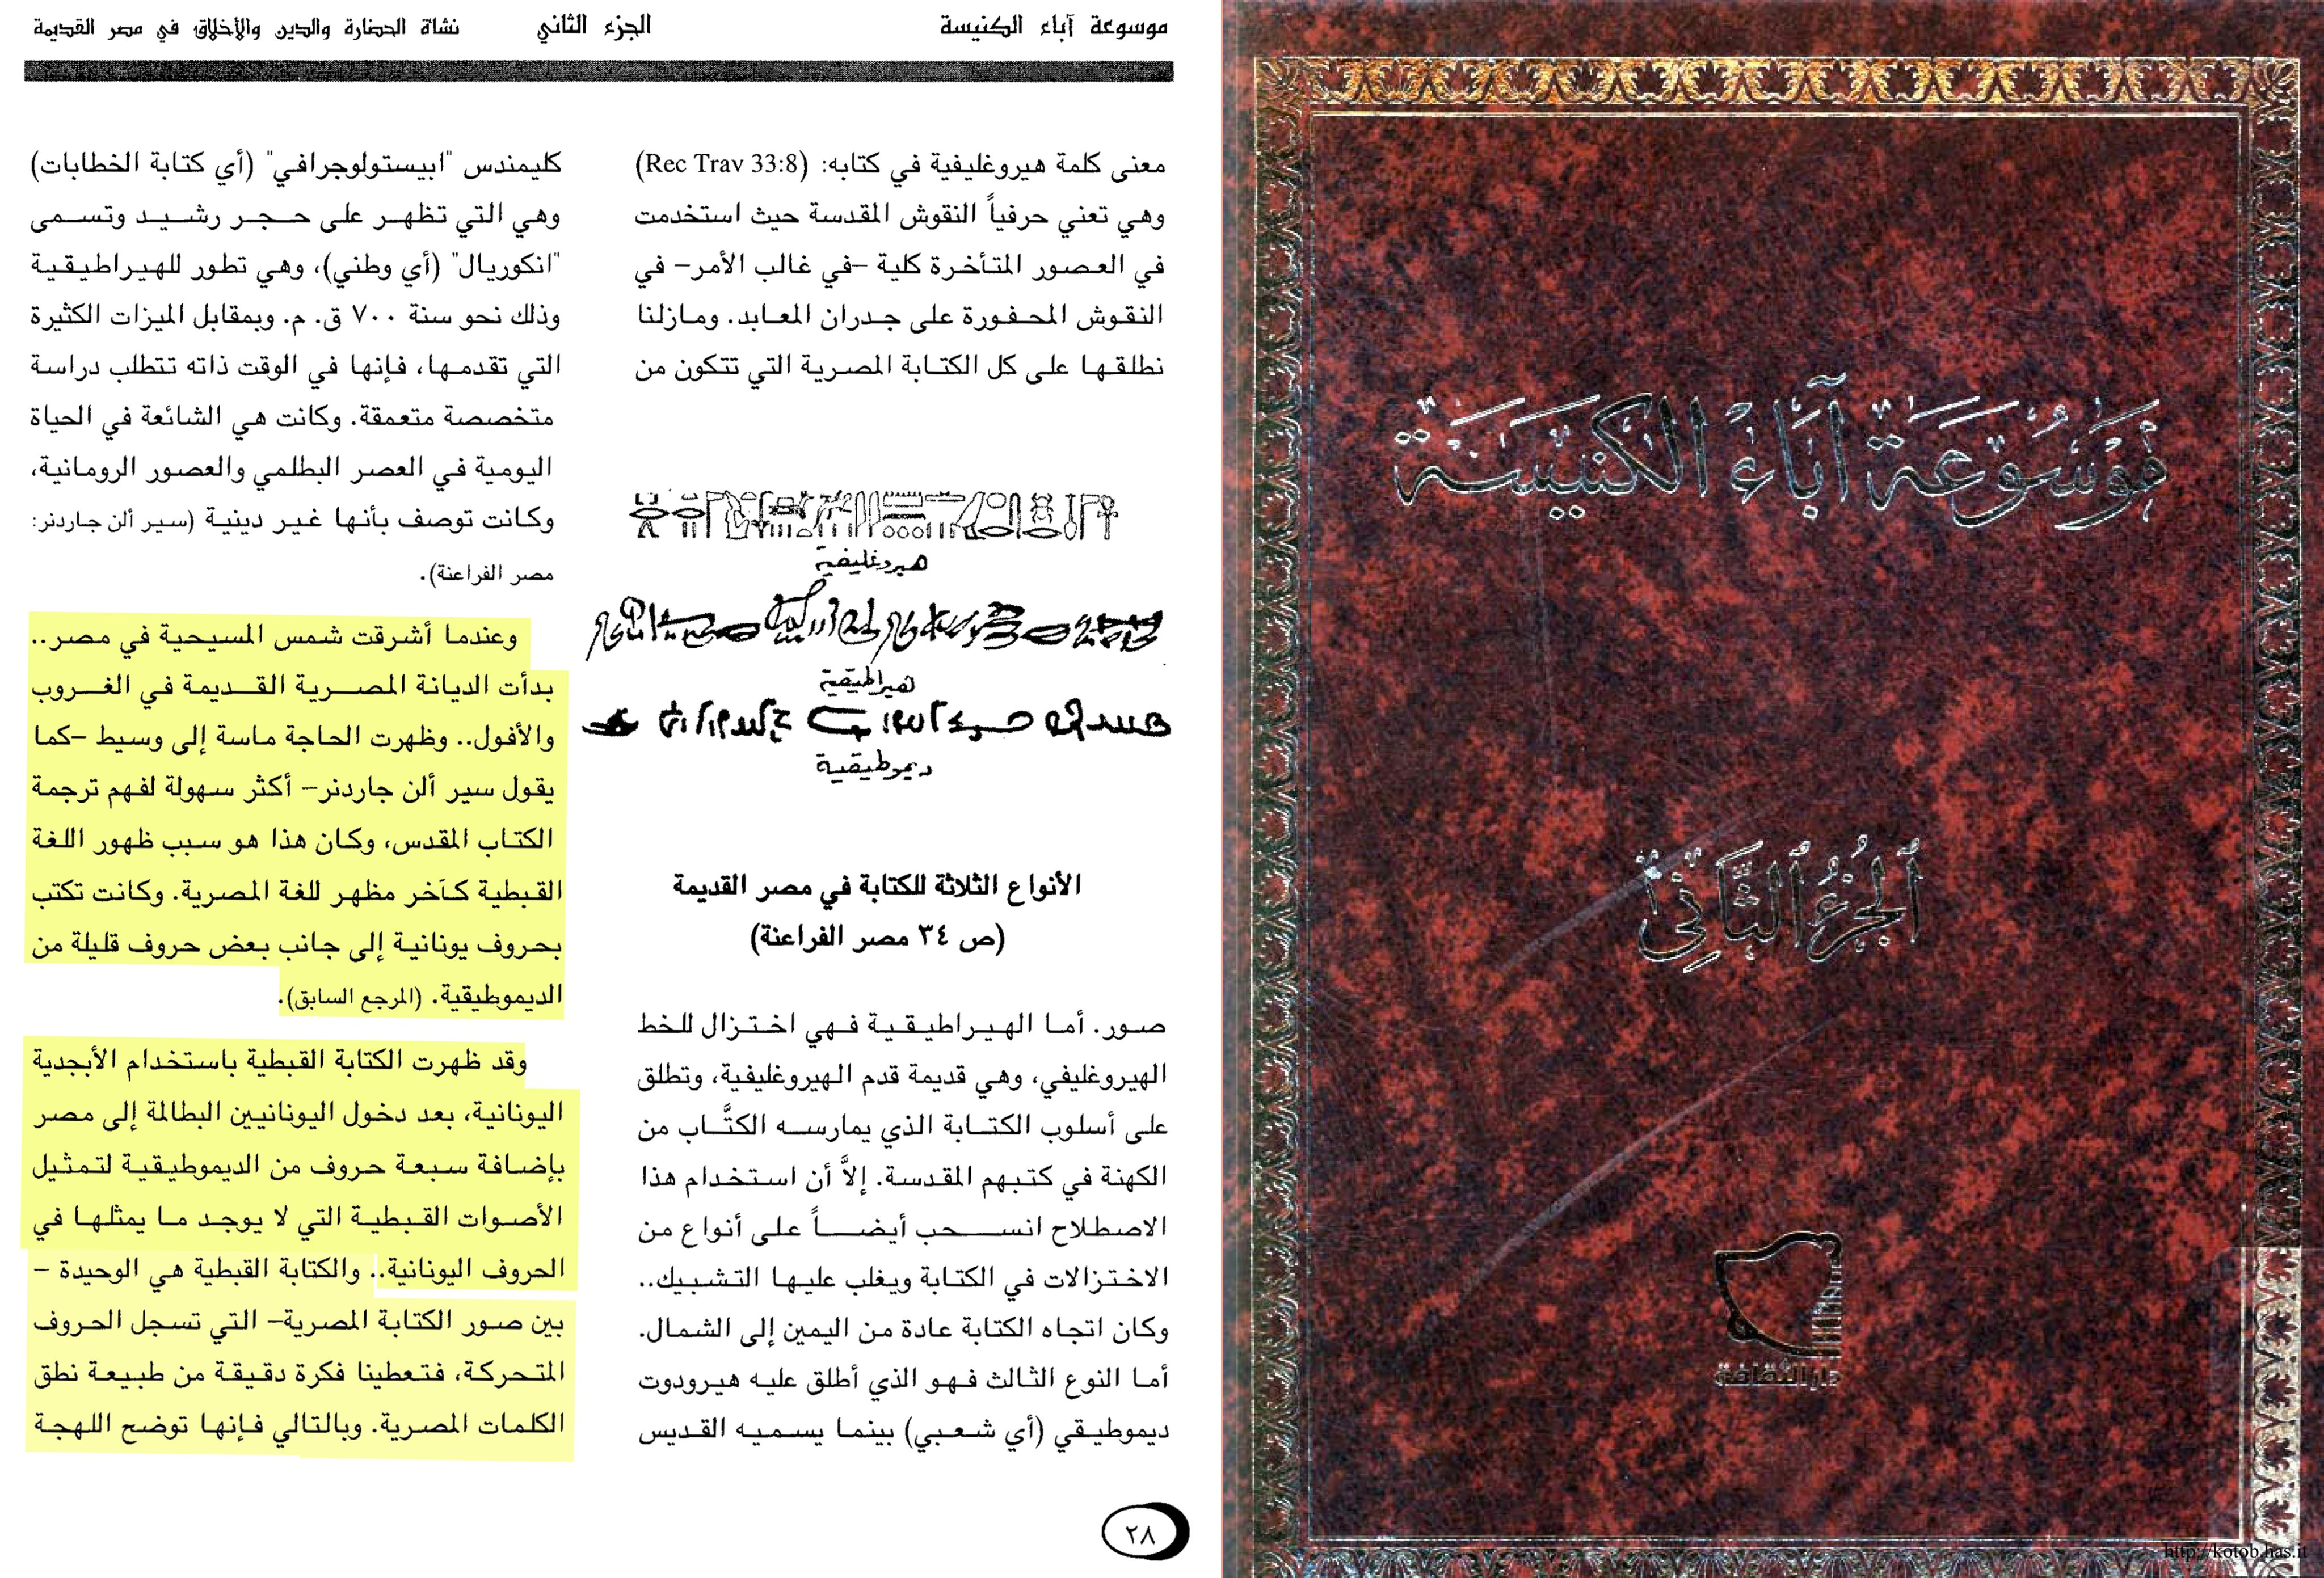 موسوعة آباء الكنيسة
الجزء الثاني
نشأة الحضارة والدين والأخلاق في مصر القديمة
معنى كلمة هيروغليفية في كتابه: (Rec Trav 33:8)
وهي تعني حرفياً النقوش المقدسة حيث استخدمت
في العصور المتأخرة كلية –في غالب الأمر– في
النقوش المحفورة على جدران المعابد. ومازلنا
نطلقها على كل الكتابة المصرية التي تتكون من
هيروغليفية
هيراطيقية
ديموطيقية
الأنواع الثلاثة للكتابة في مصر القديمة
(ص ٣٤ مصر الفراعنة)
صور. أما الهيراطيقية فهي اختزال للخط
الهيروغليفي، وهي قديمة قدم الهيروغليفية، وتطلق
على أسلوب الكتابة الذي يمارسه الكتَّاب من
الكهنة في كتبهم المقدسة. إلاَّ أن استخدام هذا
الاصطلاح انسحب أيضاً على أنواع من
الاختزالات في الكتابة ويغلب عليها التشبيك..
وكان اتجاه الكتابة عادة من اليمين إلى الشمال.
أما النوع الثالث فهو الذي أطلق عليه هيرودوت
ديموطيقي (أي شعبي) بينما يسميه القديس
كليمندس "ابيستولوجرافي" (أي كتابة الخطابات)
وهي التي تظهر على حجر رشيد وتسمى
"انكوريال" (أي وطني)، وهي تطور للهيراطيقية
وذلك نحو سنة ٧٠٠ ق. م. وبمقابل الميزات الكثيرة
التي تقدمها، فإنها في الوقت ذاته تتطلب دراسة
متخصصة متعمقة. وكانت هي الشائعة في الحياة
اليومية في العصر البطلمي والعصور الرومانية،
وكانت توصف بأنها غير دينية (سير ألن جاردنر:
مصر الفراعنة).
وعندما أشرقت شمس المسيحية في مصر..
بدأت الديانة المصرية القديمة في الغروب
والأفول.. وظهرت الحاجة ماسة إلى وسيط –كما
يقول سير ألن جاردنر– أكثر سهولة لفهم ترجمة
الكتاب المقدس، وكان هذا هو سبب ظهور اللغة
القبطية كآخر مظهر للغة المصرية. وكانت تكتب
بحروف يونانية إلى جانب بعض حروف قليلة من
الديموطيقية. (المرجع السابق).
وقد ظهرت الكتابة القبطية باستخدام الأبجدية
اليونانية، بعد دخول اليونانيين البطالمة إلى مصر
بإضافة سبعة حروف من الديموطيقية لتمثيل
الأصوات القبطية التي لا يوجد ما يمثلها في
الحروف اليونانية.. والكتابة القبطية هي الوحيدة –
بين صور الكتابة المصرية– التي تسجل الحروف
المتحركة، فتعطينا فكرة دقيقة من طبيعة نطق
الكلمات المصرية. وبالتالي فإنها توضح اللهجة
٢٨
مَوسُوعَة آبَاءُ الكَنِيسَة
الجُزءُ الثَّانِي
دار الثقافة
http://kotob.has.it